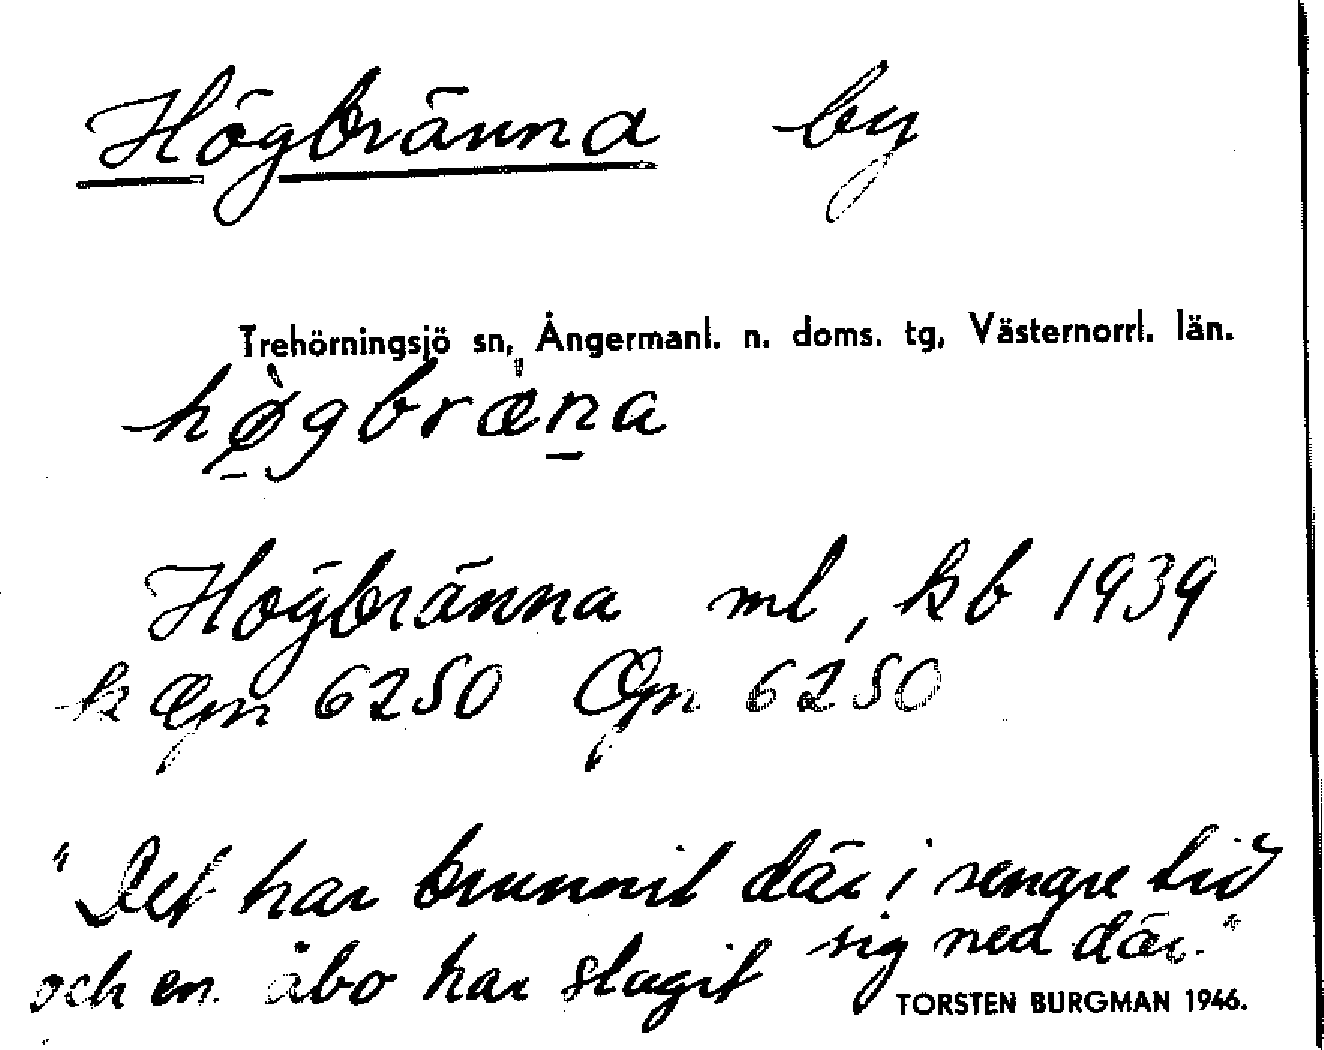 Högbränna by
Trehörningsjö sn, Ångermanl. n. doms. tg, Västernorrl. län.
hø̀gbræ̀na
Högbränna ml, kb 1939
k Ægn 6250 Ögn 6250
"Det har brunnit där i senare tid
och en åbo har slagit sig ned där."
TORSTEN BURGMAN 1946.